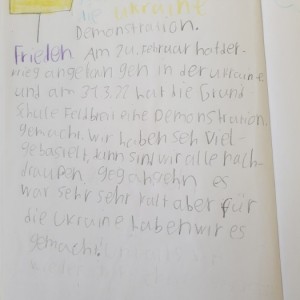 die Ukraine
Demonstration.
Frieden. Am 24. Februar hat der
krieg angefangen in der Ukraine
und am 21.3.22 hat die Grund
Schule Feldbrai eine Demonstration
gemacht. wir haben seh viel
gebastelt, dann sind wir alle nach
draußen gegansehn es
war sehr sehr kalt aber für
die Ukraine haben wir es
gemacht.